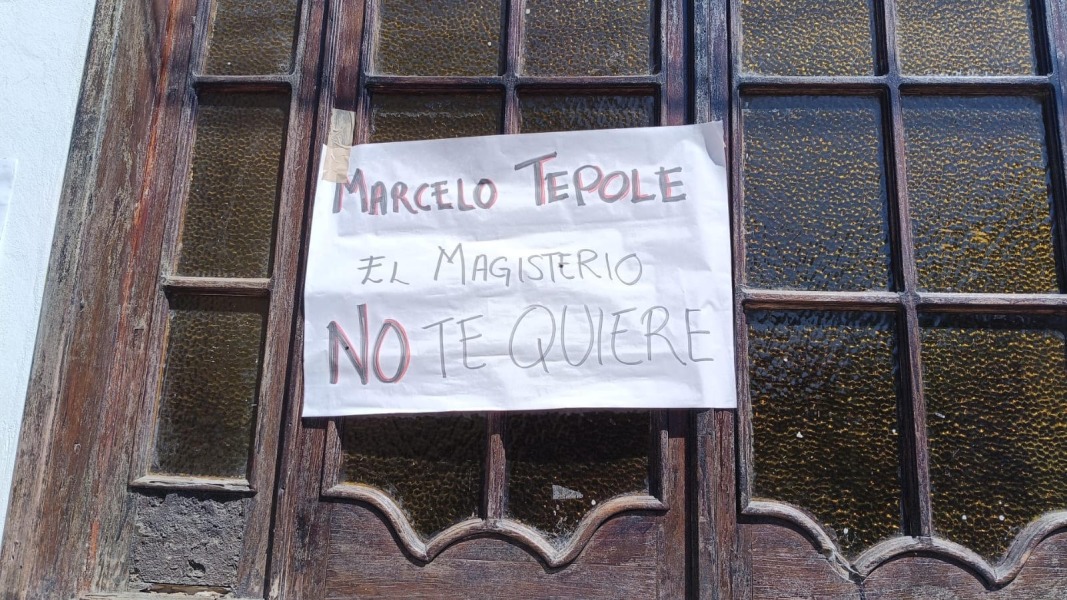 MARCELO TEPOLE
EL MAGISTERIO
NO TE QUIERE